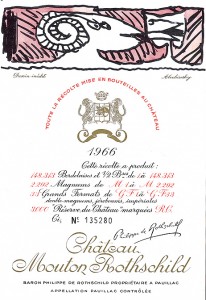 Dessin inédit
Alechinsky
TOUTE LA RÉCOLTE MISE EN BOUTEILLES AU CHÂTEAU
1966
Cette récolte a produit:
Bordelaises et 1/2 Btles de 1 à
2.202 Magnums de M 1 à M 2.202
Grands Formats de G F à G F
double-magnums, jéroboams, impériales
3000 "Réserve du Château" marquées R.C.
Ci, Nº 135280
Philippe de Rothschild
Château
Mouton Rothschild
BARON PHILIPPE DE ROTHSCHILD PROPRIÉTAIRE A PAUILLAC
APPELLATION PAUILLAC CONTRÔLÉE